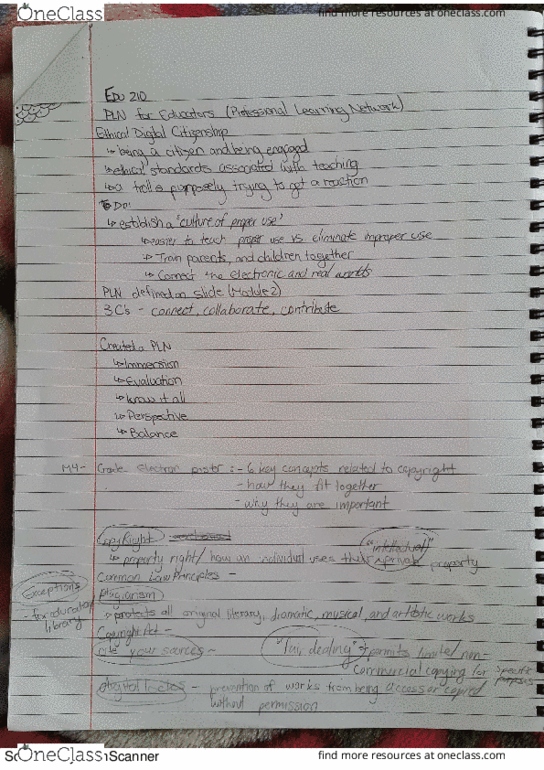 OneClass
find more resources at oneclass.com
EDU 210
PLN for Educators (Professional Learning Network)
Ethical Digital Citizenship
↳ being a citizen and being engaged
↳ ethical standards associated with teaching
↳ a troll is purposely trying to get a reaction
To Do:
↳ establish a "culture of proper use"
↳ easier to teach proper use vs eliminate improper use
↳ Train parents, and children together
↳ Connect the electronic and real worlds
PLN defined on slide (Module 2)
3 C's - connect, collaborate, contribute
Created a PLN
↳ Immersion
↳ Evaluation
↳ know it all
↳ Perspective
↳ Balance
M4- Grade electron poster :- 6 key concepts related to copyright
- how they fit together
- why they are important
Copyright
"intellectual"
↳ property right/ how an individual uses their private property
Common Law Principles -
Exceptions
Plagiarism
- for educators library
↳ protects all original literary, dramatic, musical, and artistic works
Copyright Act -
cite your sources - "fair dealing" → permits limited non-
commercial copying for specific purposes
digital locks - prevention of works from being access or copied
without permission
OneClass
Scanner
find more resources at oneclass.com